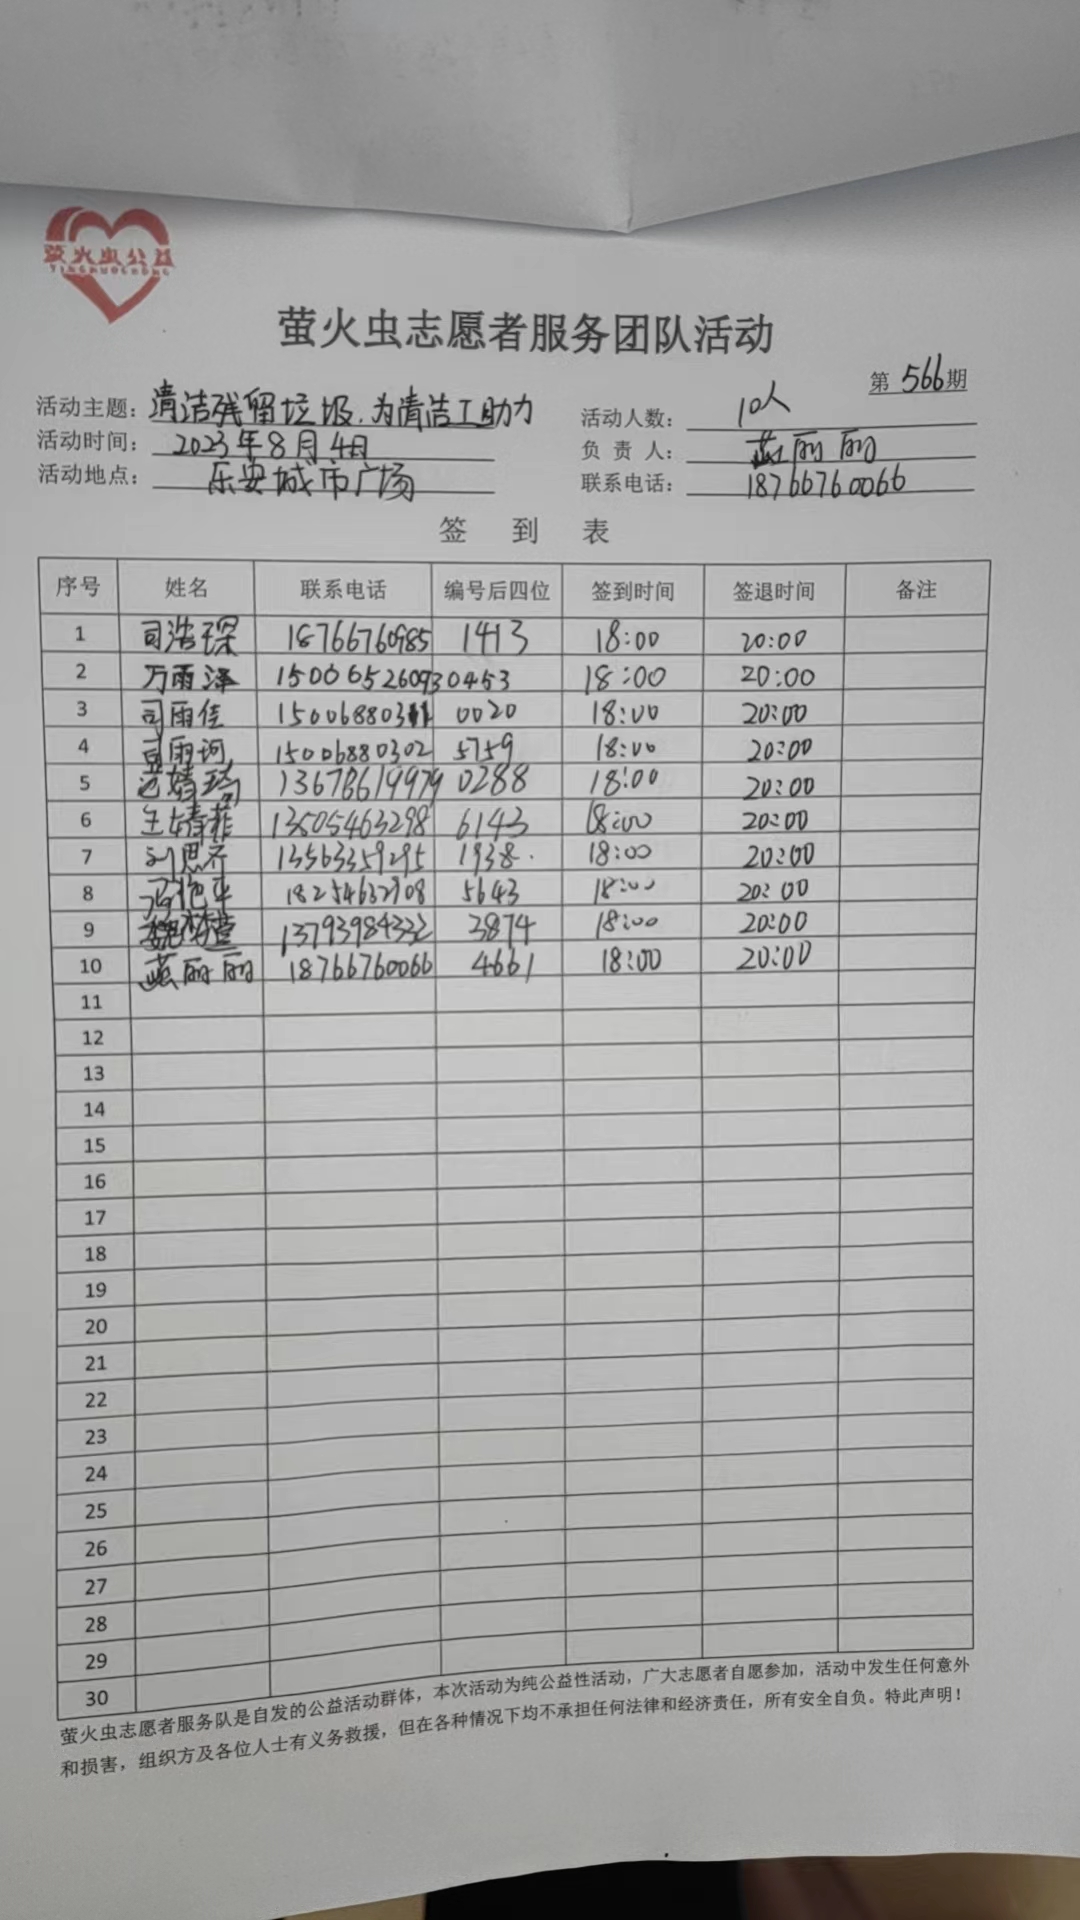 萤火虫公益
YINGHUOCHONG
萤火虫志愿者服务团队活动
第 566 期
活动主题：清洁残留垃圾.为清洁工助力 活动人数：10人
活动时间：2023年8月4日 负 责 人：蓝丽丽
活动地点：乐安城市广场 联系电话：18766760066
签 到 表
序号 姓名 联系电话 编号后四位 签到时间 签退时间 备注
1 司浩琛 18766760985 1413 18:00 20:00
2 万雨泽 15006526093 0453 18:00 20:00
3 司雨佳 150068803 0020 18:00 20:00
4 司雨珂 15006880302 5759 18:00 20:00
5 13678619979 0288 18:00 20:00
6 王靖菲 13505463298 6143 18:00 20:00
7 刘思齐 13563359295 1938. 18:00 20:00
8 18254632908 5643 18:00 20:00
9 13793984332 3874 18:00 20:00
10 蓝丽丽 18766760066 4661 18:00 20:00
11
12
13
14
15
16
17
18
19
20
21
22
23
24
25
26
27
28
29
30
萤火虫志愿者服务队是自发的公益活动群体，本次活动为纯公益性活动，广大志愿者自愿参加，活动中发生任何意外
和损害，组织方及各位人士有义务救援，但在各种情况下均不承担任何法律和经济责任，所有安全自负。特此声明！